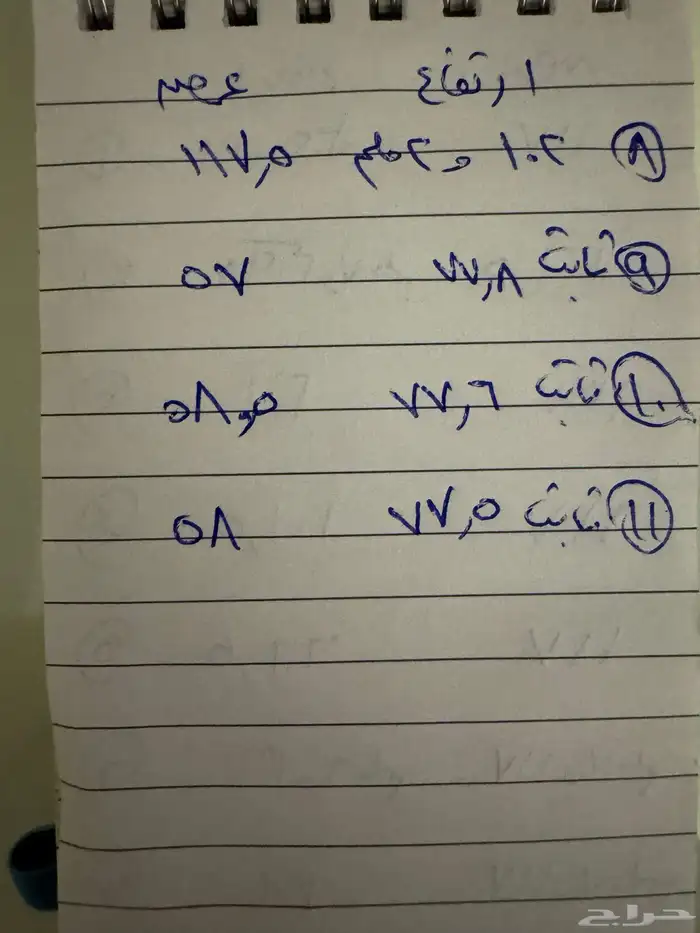 ارتفاع عرض
٨ ١٠٢ و ٢ ملم ١١٧,٥
٩ ثابت ٧٧,٨ ٥٧
١٠ ثابت ٧٧,٦ ٥٨,٥
١١ ثابت ٧٧,٥ ٥٨
حراج